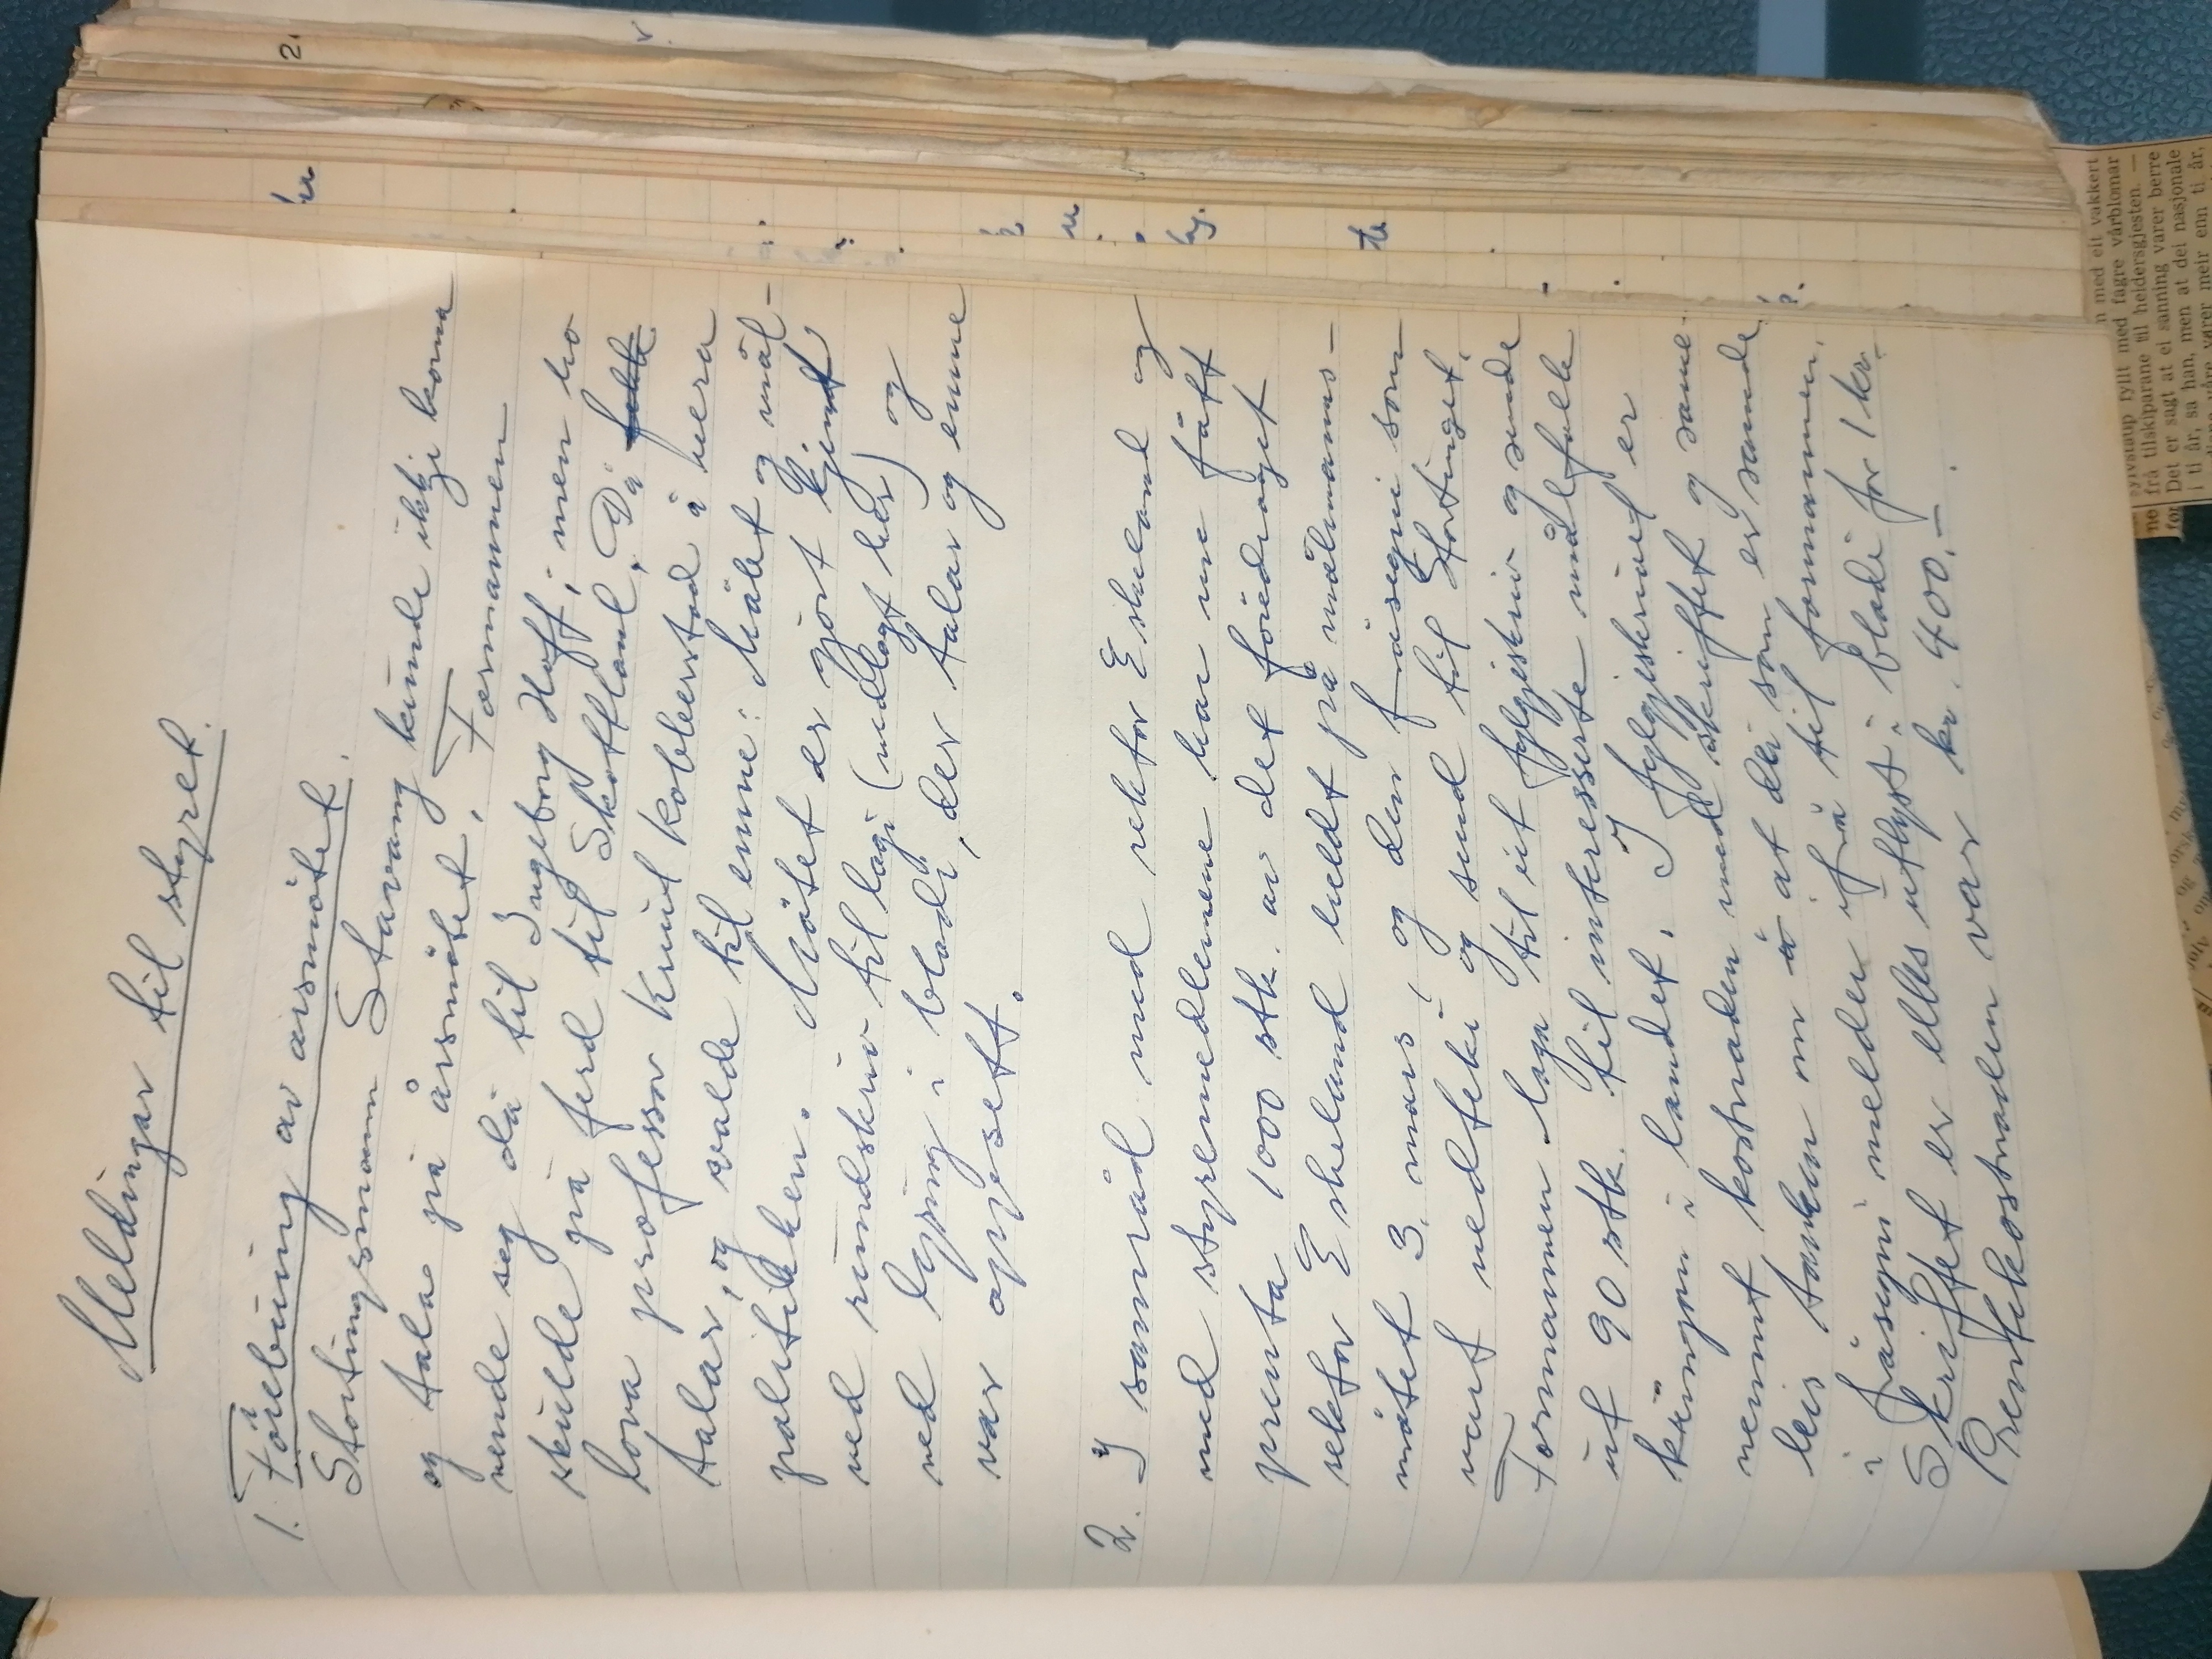 Meldingar til styret.
1. Fôrebuing av årsmøtet.
Stortingsmann Stavang kunde ikkje koma
og tala på årsmøtet. Formannen
vende seg då til Ingeborg Hoff, men ho
skulde på ferd til Skottland. Då
lova professor Knut Robberstad å vera
talar, og valde til emne: Målet og mål-
politikken. Møtet er gjort kjent
ved rundskriv til lagi (nedlagt her) og
ved lysing i bladi, der talar og emne
var oppsett.
2. I samråd med rektor Eskeland og
med styremedlemene har me fått
prenta 1000 stk. av det fôredraget
rektor Eskeland heldt på målmanns-
møtet 3. mars, og den fråsegni som
vart vedteki og send til Stortinget.
Formannen laga til eit fylgjeskriv og sende
ut 90 stk. til interesserte målfolk
kringom i landet. I fylgjeskrivet er
nemnt kostnaden med skriftet og same-
leis tanken um å at dei som er samde
i fråsegni melder ifrå til formannen.
Skriftet er elles utlyst i bladi for 1 kr.
Prentekostnaden var kr. 400,-.
2.
med eit vakkert
sylvstaup fyllt med fagre vårblomar
frå tilskiparane til heidersgjesten. —
Det er sagt at ei sanning varer berre
i ti år, sa han, men at dei nasjonale
varer meir enn ti år,